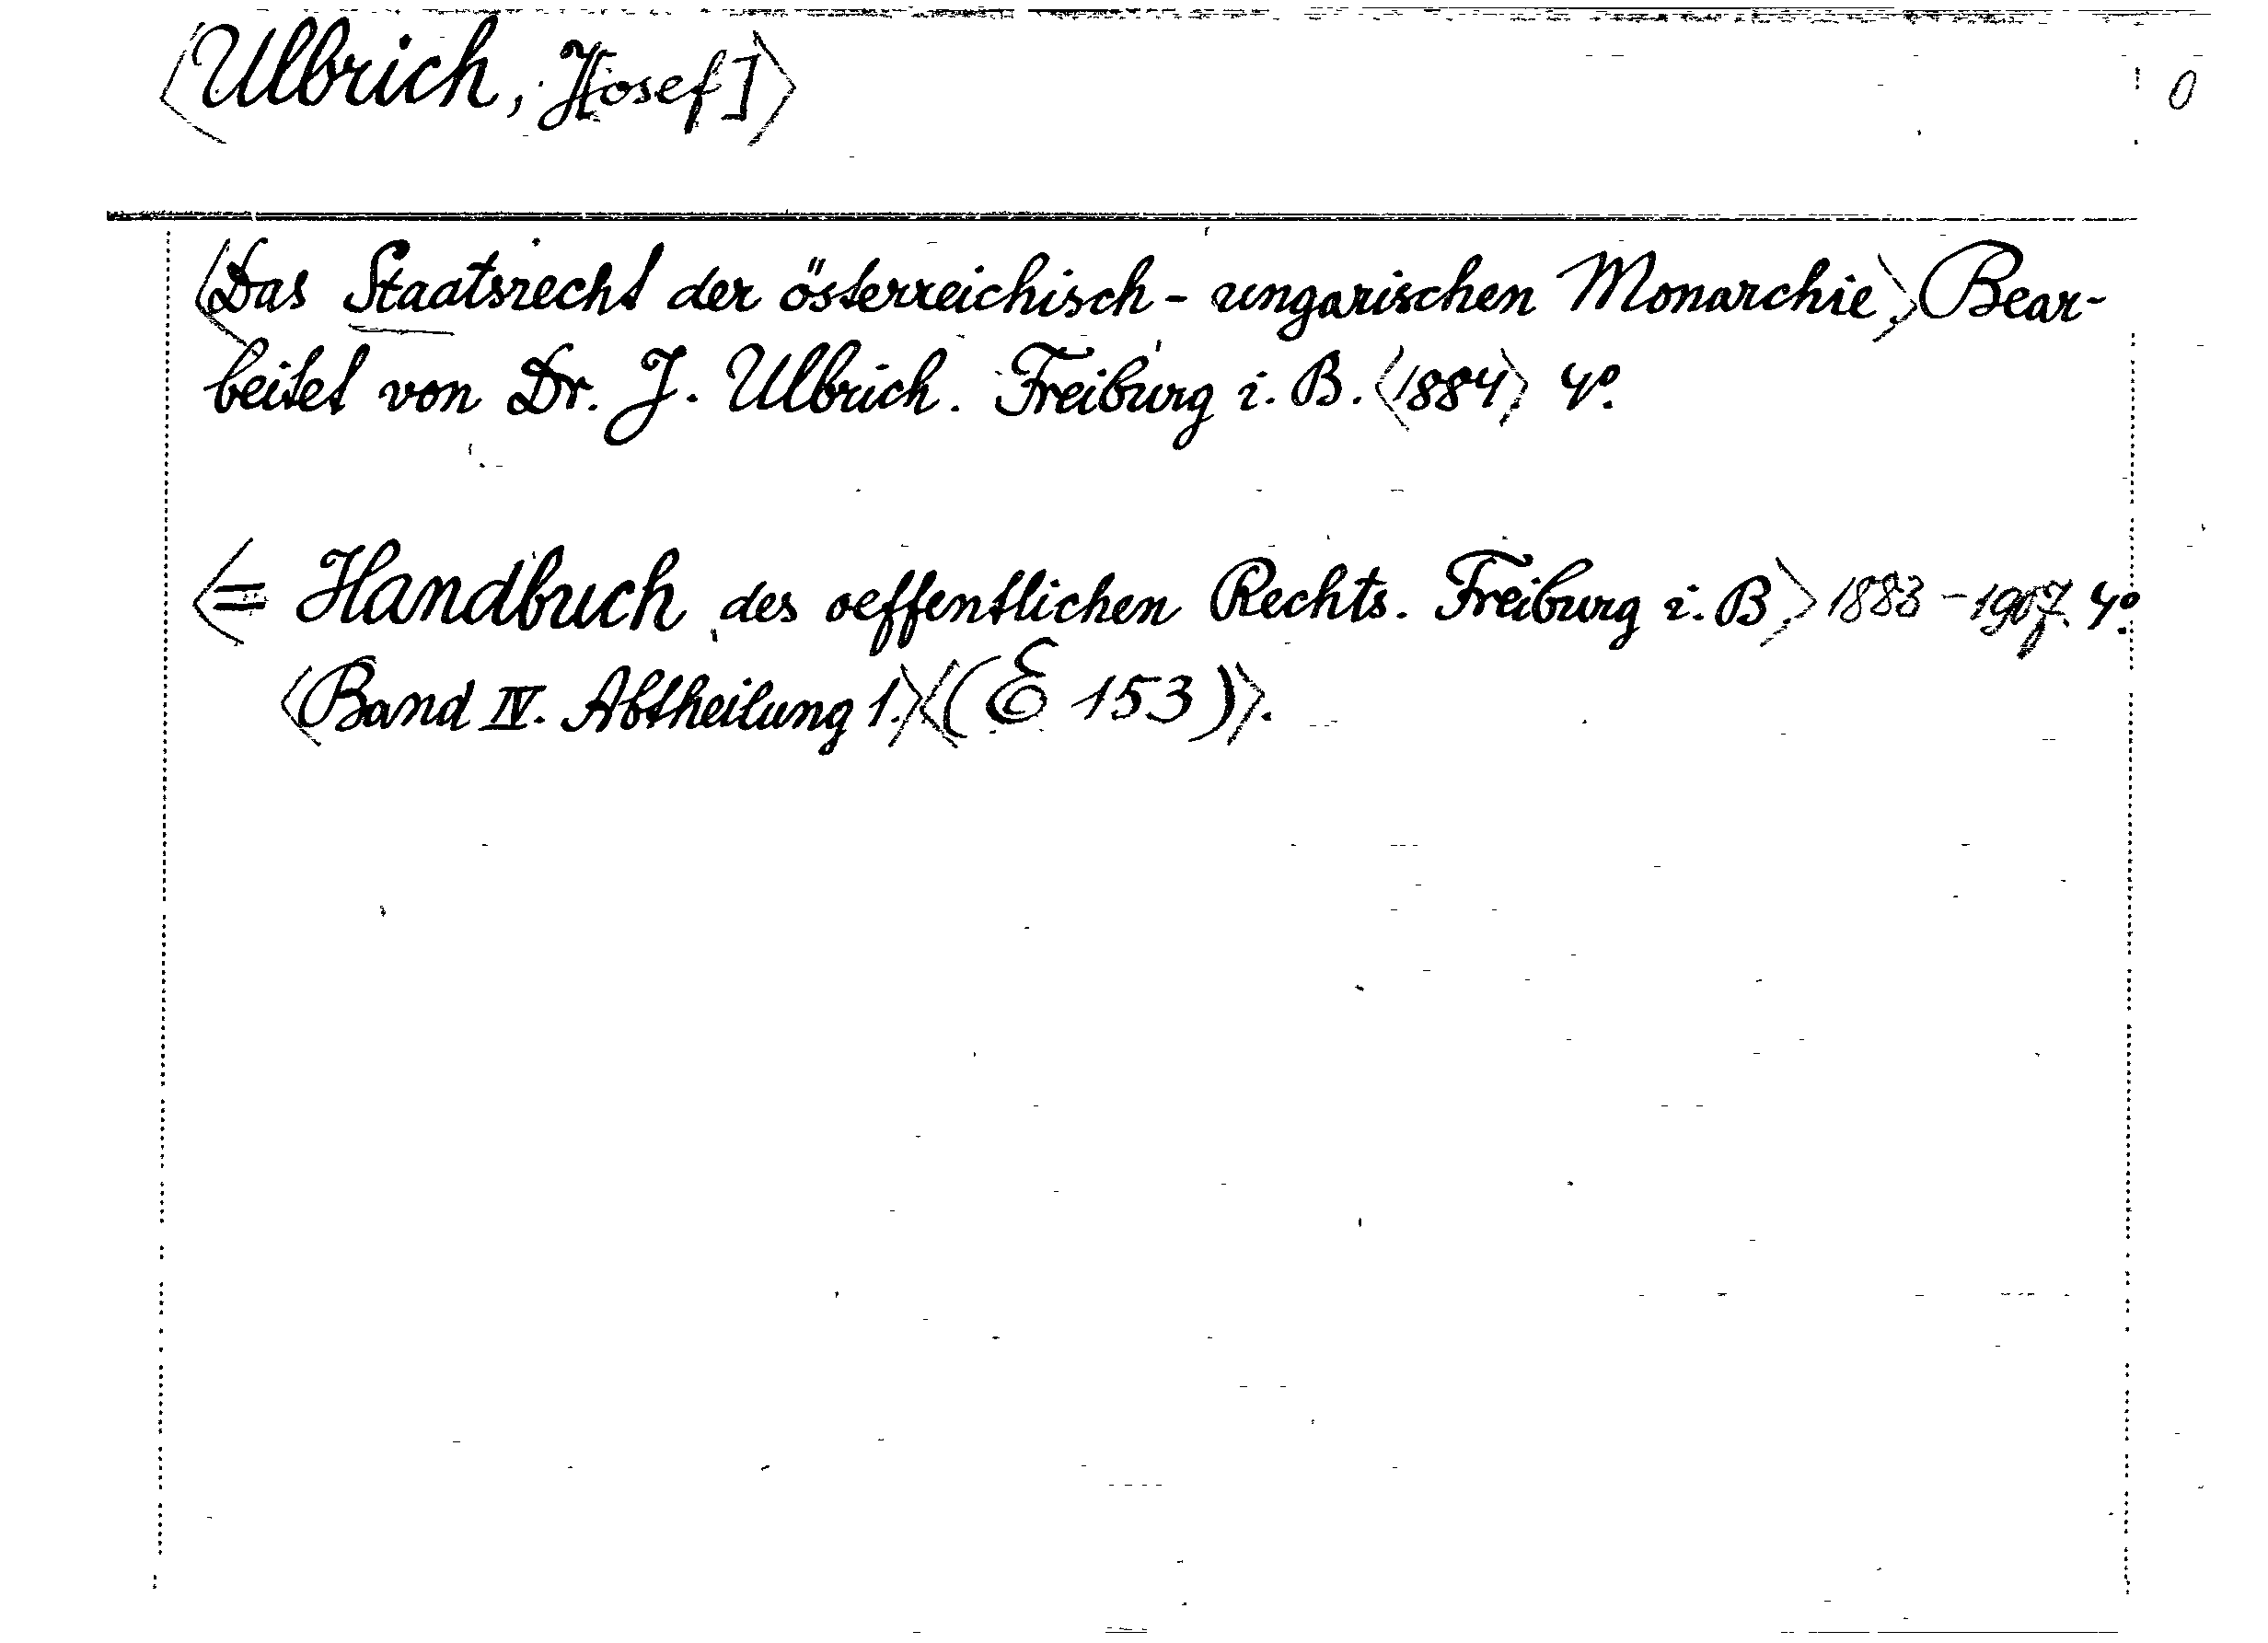 ⟨Ulbrich, J[osef]⟩ 0
⟨Das Staatsrecht der österreichisch-ungarischen Monarchie.⟩ Bear-
beitet von Dr. J. Ulbrich. Freiburg i. B. ⟨1884⟩ 4º.
⟨= Handbuch des oeffentlichen Rechts. Freiburg i. B.⟩ 1883-1907. 4º.
⟨Band IV. Abtheilung 1.⟩ ⟨(E 153)⟩.